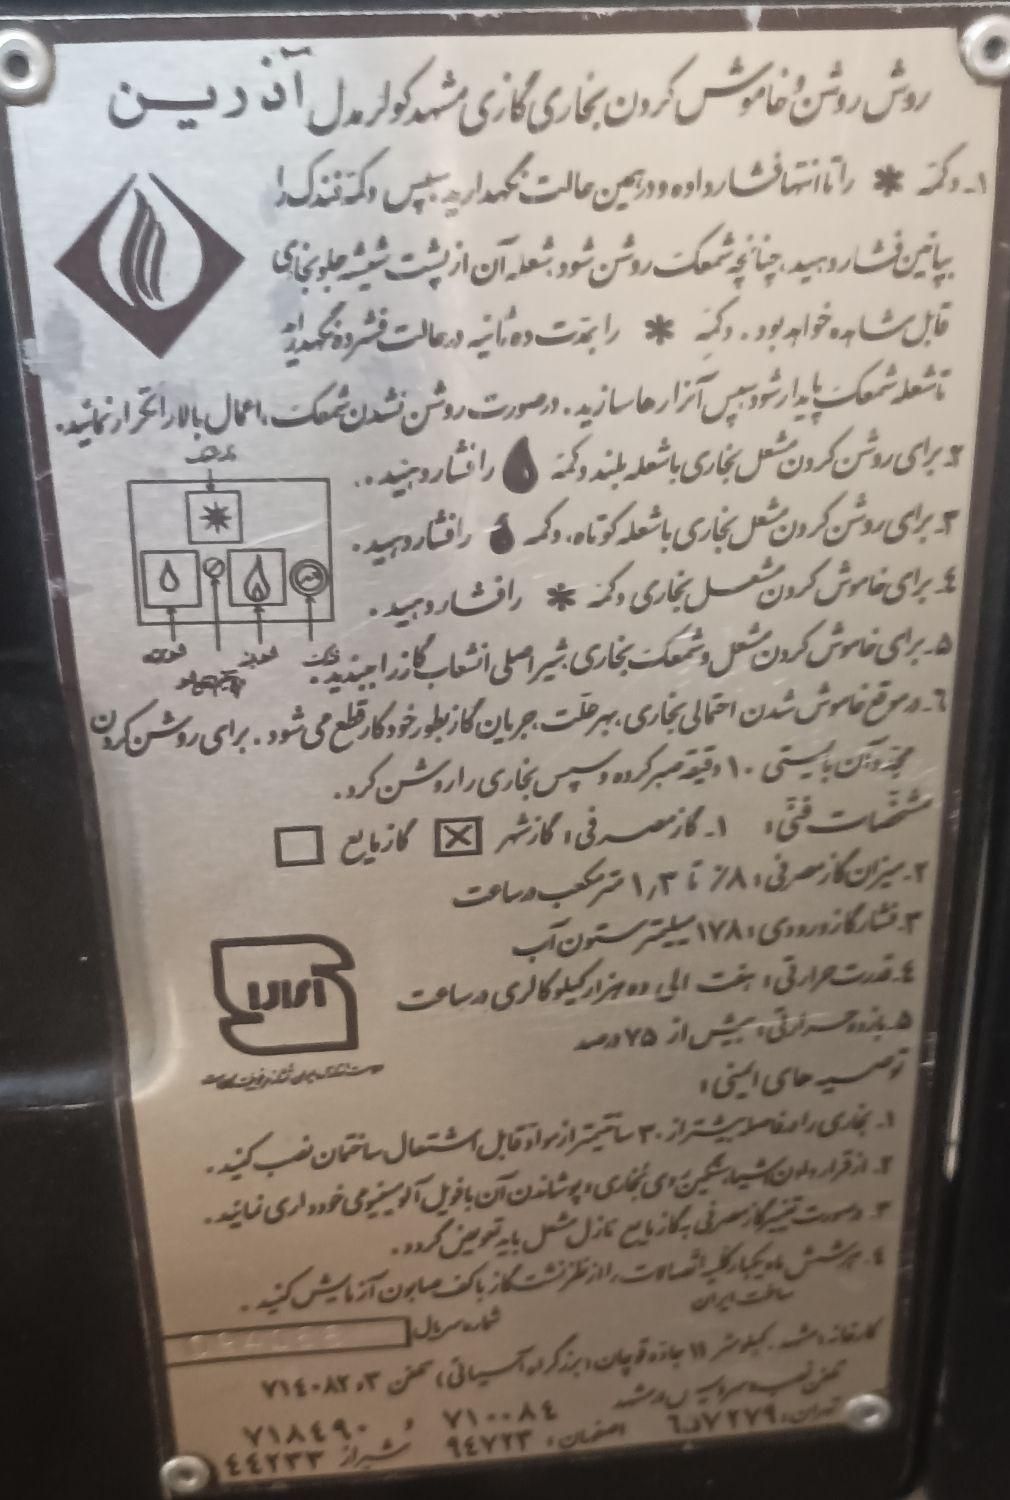 روش روشن و خاموش کردن بخاری گازی مشهد کولر مدل آذرین
۱- دکمه * را تا انتها فشار داده و در همین حالت نگهدارید، سپس دکمه فندک را
بپائین فشار دهید، چنانچه شمعک روشن شود، شعله آن از پشت شیشه جلو بخاری
قابل مشاهده خواهد بود. دکمه * را بمدت ده ثانیه در حالت فشرده نگهدارید
تا شعله شمعک پایدار شود سپس آنرا رها سازید. در صورت روشن نشدن شمعک، اعمال بالا را تکرار نمائید.
۲- برای روشن کردن مشعل بخاری با شعله بلند دکمه را فشار دهید.
۳- برای روشن کردن مشعل بخاری با شعله کوتاه، دکمه را فشار دهید.
۴- برای خاموش کردن مشعل بخاری دکمه * را فشار دهید.
۵- برای خاموش کردن مشعل و شمعک بخاری، شیر اصلی انشعاب گاز را ببندید.
فندک
۶- در موقع خاموش شدن احتمالی بخاری، بهر علت، جریان گاز بطور خودکار قطع می شود. برای روشن کردن
مجدد آن بایستی ۱۰ دقیقه صبر کرده و سپس بخاری را روشن کرد.
مشخصات فنی: ۱- گاز مصرفی: گاز شهر ☒ گاز مایع ☐
۲- میزان گاز مصرفی: ۸/. تا ۱٫۳ متر مکعب در ساعت
۳- فشار گاز ورودی: ۱۷۸ میلیمتر ستون آب
۴- قدرت حرارتی: هفت الی ده هزار کیلو کالری در ساعت
۵- بازده حرارتی: بیش از ۷۵ درصد
توصیه های ایمنی:
۱- بخاری را در فاصله بیشتر از ۳۰ سانتیمتر از مواد قابل اشتعال ساختمان نصب کنید.
۲- از قرار دادن اشیاء سنگین روی بخاری و پوشاندن آن با فویل آلومینیومی خودداری نمائید.
۳- در صورت تغییر گاز مصرفی به گاز مایع نازل مشعل باید تعویض گردد.
۴- هر شش ماه یکبار کلیه اتصالات را از نظر نشت گاز با کف صابون آزمایش کنید.
ساخت ایران
شماره سریال
کارخانه: مشهد. کیلومتر ۱۱ جاده قوچان (بزرگراه آسیائی) تلفن ۳ و ۷۱۴۰۸۲
تلفن نصب و سرویس در مشهد ۷۱۰۰۸۴ و ۷۱۸۴۹۰
تهران: اصفهان: ۹۴۷۲۳ شیراز ۴۴۲۳۳